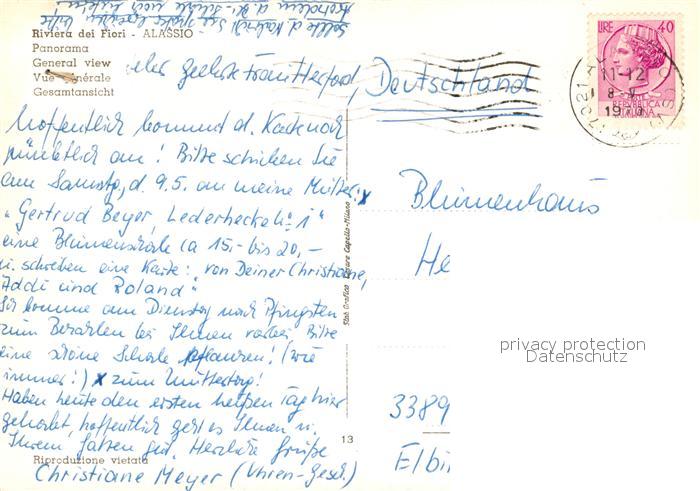 Riviera dei Fiori - ALASSIO
Panorama
General view
Vue générale
Gesamtansicht
Deutschland
LIRE 40
REPUBBLICA ITALIANA
11-12
1970
hoffentlich kommt d. Karte noch
pünktlich an! Bitte schicken Sie
am Samstg, d. 9.5. an meine Mutter: x
"Gertrud Beyer, Lederhecke
eine Blumenschale (a 15,- bis 20,-
u. schreiben eine Karte: "von Deiner Christiane,
Addi und Roland"
Ich komme am Dienstag nach Pfingsten
zum Bezahlen bei Ihnen vorbei. Bitte
eine schöne Schale pflanzen! (wie
immer!) x zum Muttertag!
Haben heute den ersten heißen Tag hier
gehabt, hoffentlich geht es Ihnen u.
Ihrem Gatten gut. Herzliche Grüße
Christiane Meyer (Uhren-Gesch.)
Riproduzione vietata
13
Blumenhaus
He
3389
Elbi
privacy protection
Datenschutz